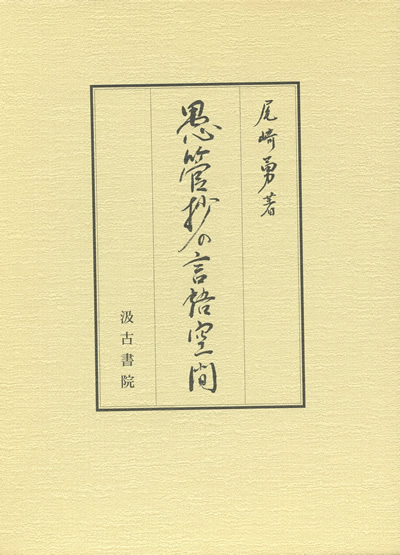 尾崎勇著
愚管抄の言語空間
汲古書院